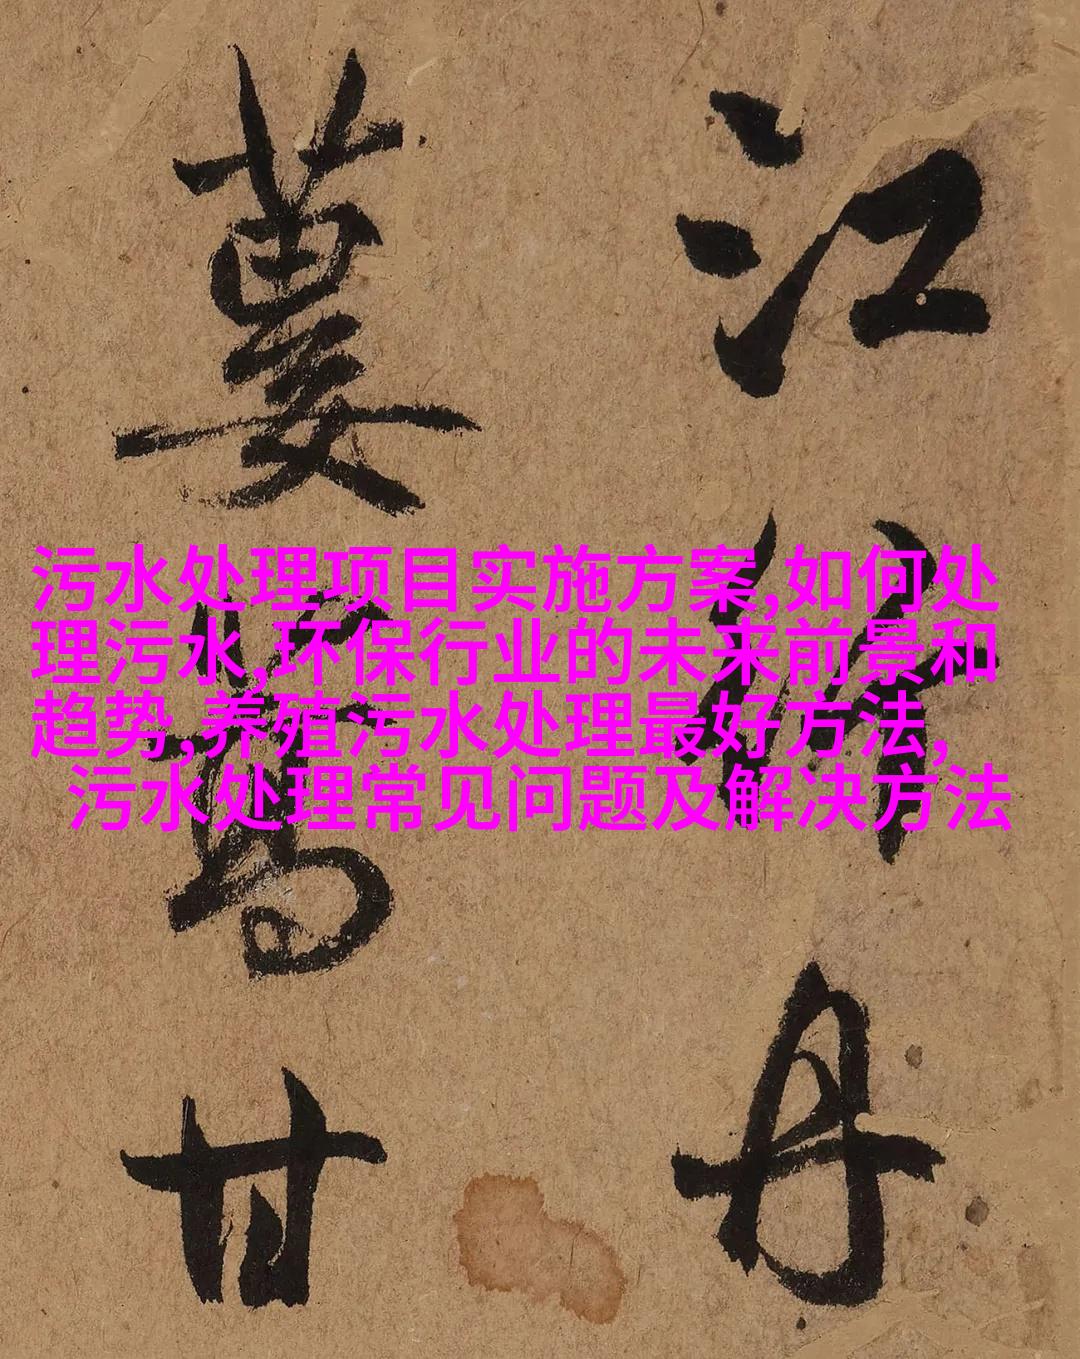 江
丹
蔞蒿甘
污水处理项目实施方案,如何处
理污水,环保行业的未来前景和
趋势,养殖污水处理最好方法,
污水处理常见问题及解决方法